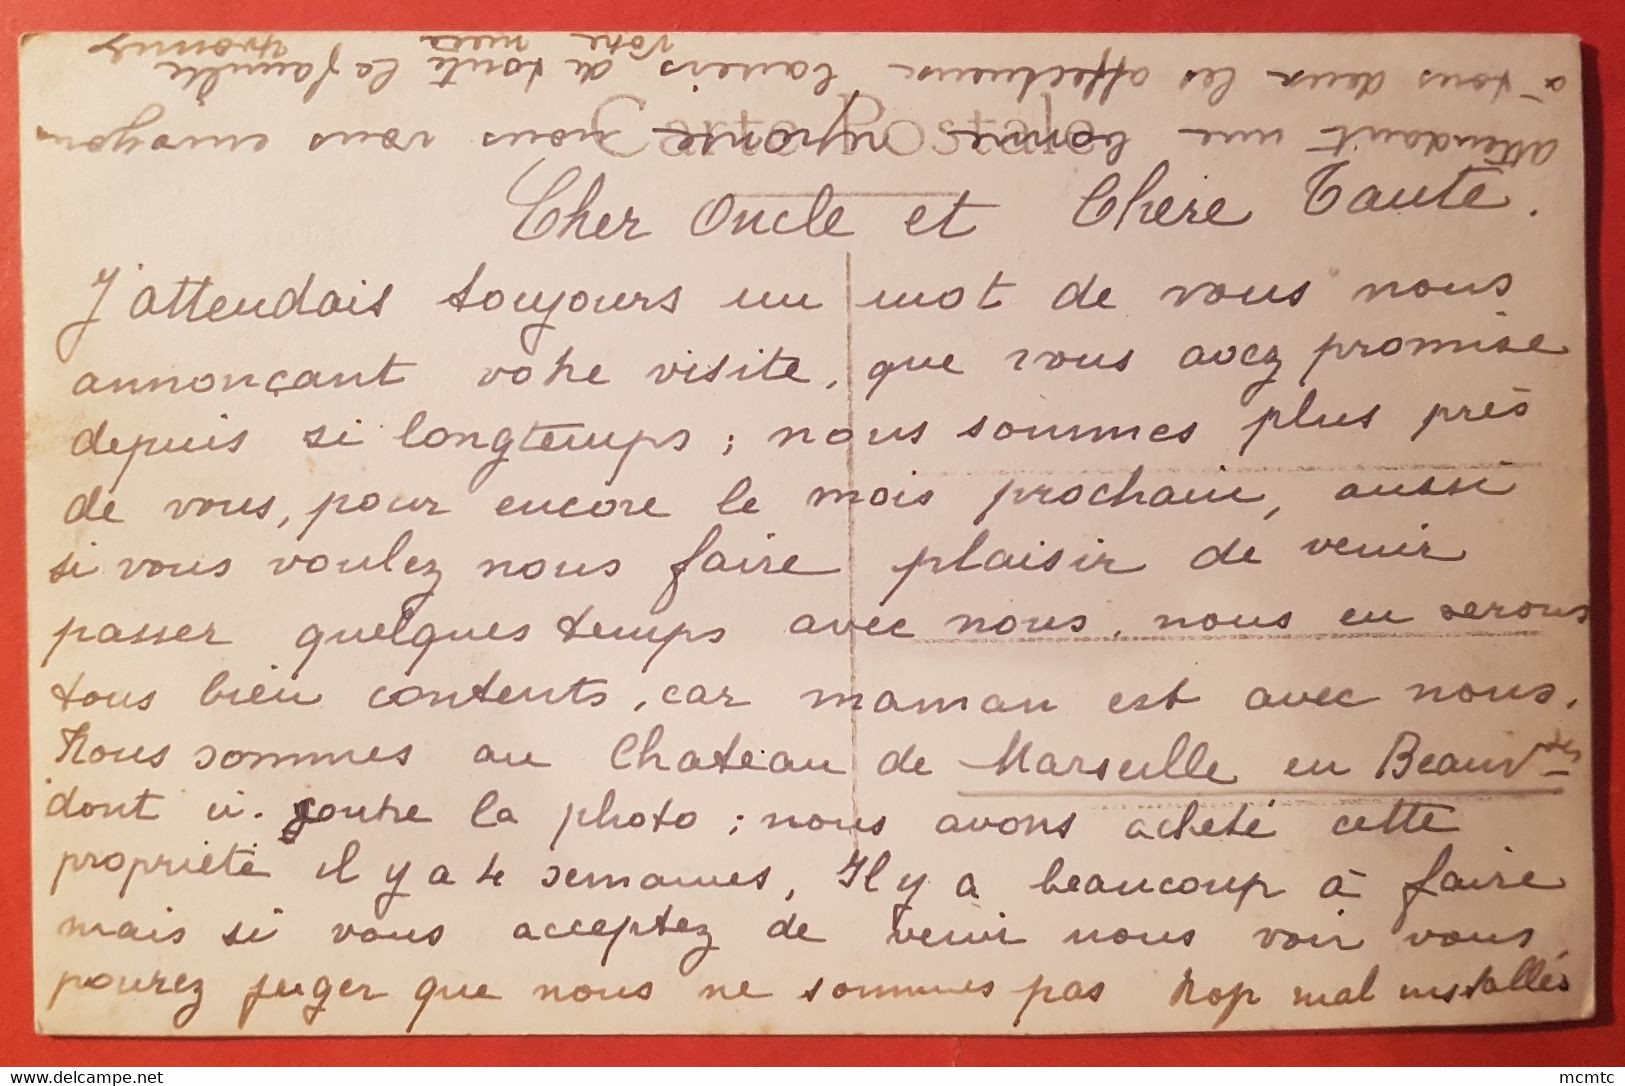 Carte Postale
Cher Oncle et Chère Tante.
J'attendais toujours un mot de vous nous
annonçant votre visite, que vous avez promise
depuis si longtemps ; nous sommes plus près
de vous, pour encore le mois prochain, aussi
si vous voulez nous faire plaisir de venir
passer quelques temps avec nous, nous en serons
tous bien contents, car maman est avec nous.
Nous sommes au Chateau de Marseille en Beauv
dont ci. joutre la photo ; nous avons acheté cette
propriété il y a 4 semaines, Il y a beaucoup à faire
mais si vous acceptez de venir nous voir vous
pourez juger que nous ne sommes pas trop mal installés
attendant une bonne réponse nous vous envoyons
à tous deux les affectueux baisers de toute la famille
Votre nièce
Yvonne
mcmtc